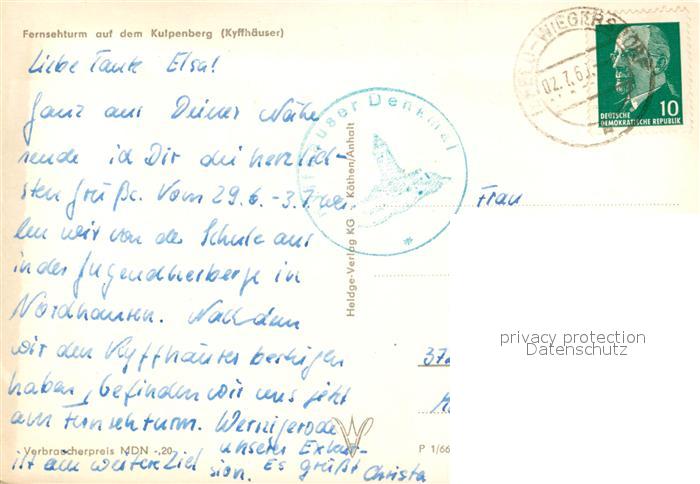 Fernsehturm auf dem Kulpenberg (Kyffhäuser)
Liebe Tante Elsa!
Ganz aus Deiner Nähe
sende ich Dir die herzlich-
sten Grüße. Vom 29.6. - 3.7. wei-
len wir von der Schule aus
in der Jugendherberge in
Nordhausen. Nachdem
wir den Kyffhäuser bestiegen
haben, befinden wir uns jetzt
am Fernsehturm. Wernigerode
ist ein weiteres Ziel unserer Exkur-
sion. Es grüßt Christa
Verbraucherpreis MDN -,20
P 1/66
Heldge-Verlag KG Köthen/Anhalt
Denkmal
02.7.6
DEUTSCHE
DEMOKRATISCHE REPUBLIK
10
Frau
37
privacy protection
Datenschutz